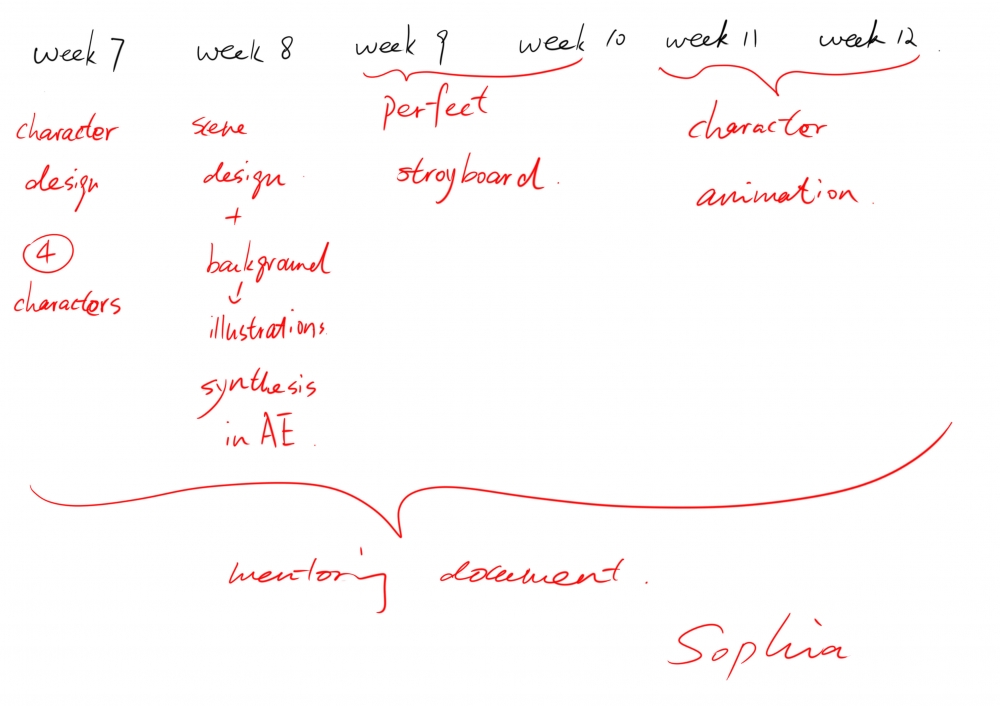 week 7 week 8 week 9 week 10 week 11 week 12
character
design
4
characters
scene
design
+
background
illustrations
synthesis
in AE
perfect
stroyboard
character
animation
mentoring document
Sophia